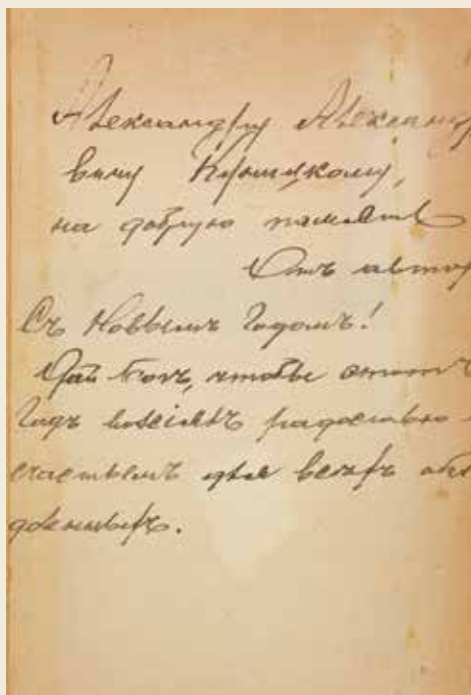 Александру Александ
вичу
на добрую память
Отъ автор
Съ Новымъ Годомъ!
Дай Богъ, чтобы этотъ
Годъ возсіялъ радостью
счастьемъ для всѣхъ обе
доленныхъ.